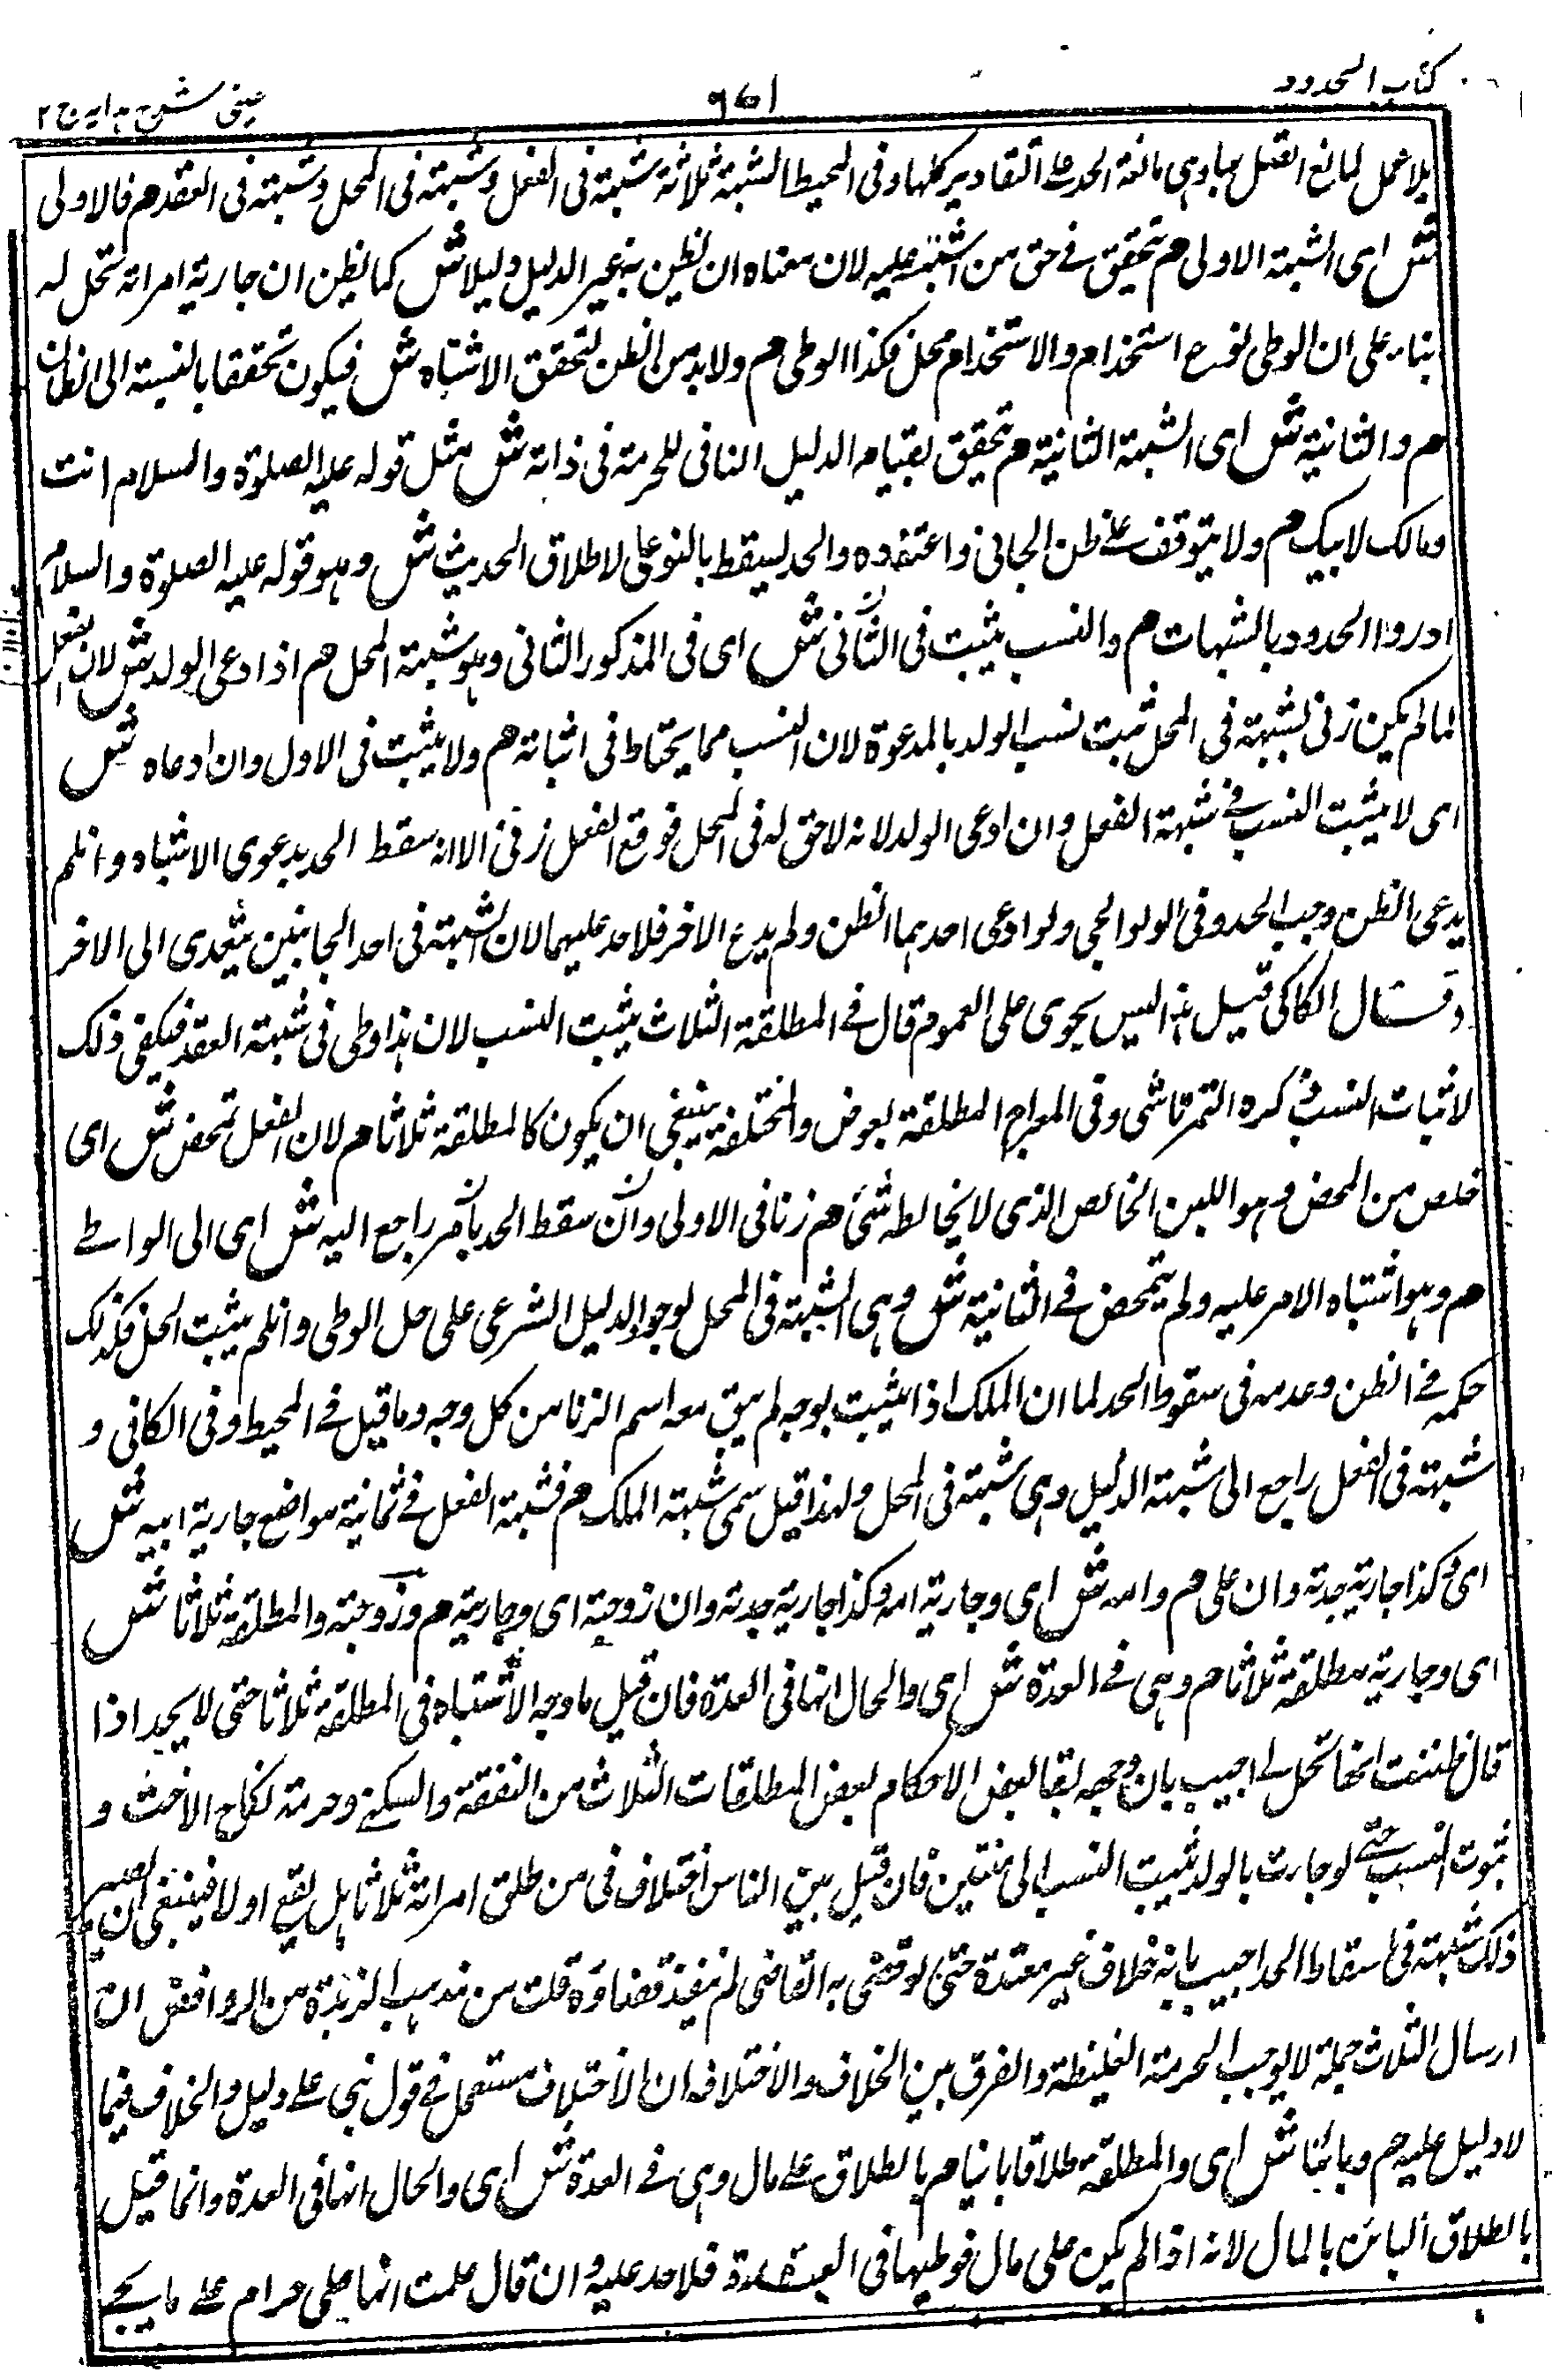 كتاب الحدود
٩٦١
عينى شرح هدايه ج ٢
بلا عمل لمانع اتصل بها وهى مانعة الحد على التقادير كلها وفى المحيط الشبهة ثلاثة شبهة فى الفعل وشبهة فى المحل وشبهة فى العقد هم فالاولى
ش اى الشبهة الاولى هم تتحقق فى حق من اشتبه عليه لان معناه ان يظن غير الدليل دليلا ش كما يظن ان جارية امراته تحل له
بناء على ان الوطى نوع استخدام والاستخدام محل فكذا الوطى هم ولا بد من الظن لتحقق الاشتباه ش فيكون تحققا بالنسبة الى الظان
هم والثانية ش اى الشبهة الثانية هم تتحقق بقيام الدليل النافى للحرمة فى ذاته ش مثل قوله عليه الصلوة والسلام انت
ومالك لابيك هم ولا يتوقف على ظن الجانى واعتقاده والحد يسقط بالنوعين لاطلاق الحديث ش وهو قوله عليه الصلوة والسلام
ادروا الحدود بالشبهات هم والنسب يثبت فى الثانى ش اى فى المذكور الثانى وهو شبهة المحل هم اذا ادعى الولد ش لان الفعل
لما لم يكن زنى لشبهة فى المحل ثبت نسب الولد بالدعوة لان النسب مما يحتاط فى اثباته هم ولا يثبت فى الاول وان ادعاه ش
اى لا يثبت النسب فى شبهة الفعل وان ادعى الولد لانه لا حق له فى المحل فوقع الفعل زنى الا انه سقط الحد بدعوى الاشتباه وان لم
يدعى الظن وجب الحد وفى الولوالجى ولو ادعى احدهما الظن ولم يدع الاخر فلا حد عليهما لان الشبهة فى احد الجانبين يتعدى الى الاخر
وقال الكاكى قيل هذا ليس يجرى على العموم قال فى المطلقة الثلاث يثبت النسب لان هذا وطى فى شبهة العقد فيكفى ذلك
لاثبات النسب ذكره التمرتاشى وفى المعراج المطلقة بعوض والمختلعة ينبغى ان يكون كالمطلقة ثلاثا هم لان الفعل تمحض ش اى
خلص من المحض وهو اللبن الخالص الذى لا يخالطه شئ هم زنا فى الاولى وان سقط الحد بامر راجع اليه ش اى الى الواطے
هم وهو اشتباه الامر عليه ولم يتمحض فى الثانية ش وهى الشبهة فى المحل لوجود الدليل الشرعى على حل الوطى وان لم يثبت الحل فكذلك
حكمه فى الظن وعدمه فى سقوط الحد لما ان الملك اذا يثبت بوجه لم يبق معه اسم الزنا من كل وجه وما قيل فى المحيط وفى الكافى و
شبهة فى الفعل راجع الى شبهة الدليل وهى شبهة فى المحل ولهذا قيل سمى شبهة الملك هم فشبهة الفعل فى ثمانية مواضع جارية ابيه ش
اى وكذا جارية جده وان على هم وامه ش اى وجارية امه وكذا جارية جدته وان زوجته اى وجارية هم وزوجته والمطلقة ثلاثا ش
اى وجارية مطلقة ثلاثا هم وهى فى العدة ش اى والحال انها فى العدة فان قيل ما وجه الاشتباه فى المطلقة ثلاثا حتى لا يحد اذا
قال ظننت انها تحل لى اجيب بان وجهه بقا بعض الاحكام لبعض المطلقات الثلاث من النفقة والسكنى وحرمة نكاح الاخت و
ثبوت النسب حتى لو جارت بالولد يثبت النسب الى سنتين فان قيل بين الناس اختلاف فى من طلق امراته ثلاثا هل يقع اولا فينبغى ان يصير
ذلك شبهة فى اسقاط الحد اجيب بانه خلاف غير معتدة حتى لو قضى به القاضى لم ينفذ قضاؤه قلت من مذهب الزيدة من الروافض ان
ارسال الثلاث جملة لا يوجب الحرمة الغليظة والفرق بين الخلاف والاختلاف ان الاختلاف مستعمل فى قول بنى على دليل والخلاف فيما
لا دليل عليه هم وبائنا ش اى والمطلقة طلاقا بائنا هم بالطلاق على مال وهى فى العدة ش اى والحال انها فى العدة وانما قيل
بالطلاق البائن بالمال لانه اذا لم يكن على مال فوطيها فى العدة فلا حد عليه وان قال علمت انها على حرام على ما يجے